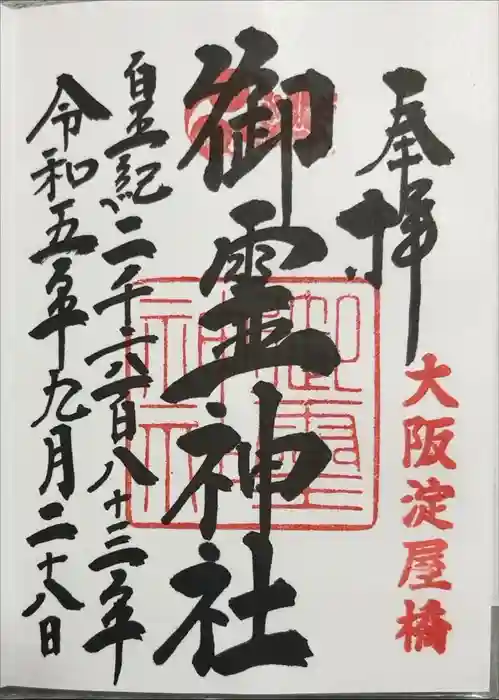 奉拝
大阪淀屋橋
御霊神社
御霊神社
皇紀二千六百八十三年
令和五年九月二十八日